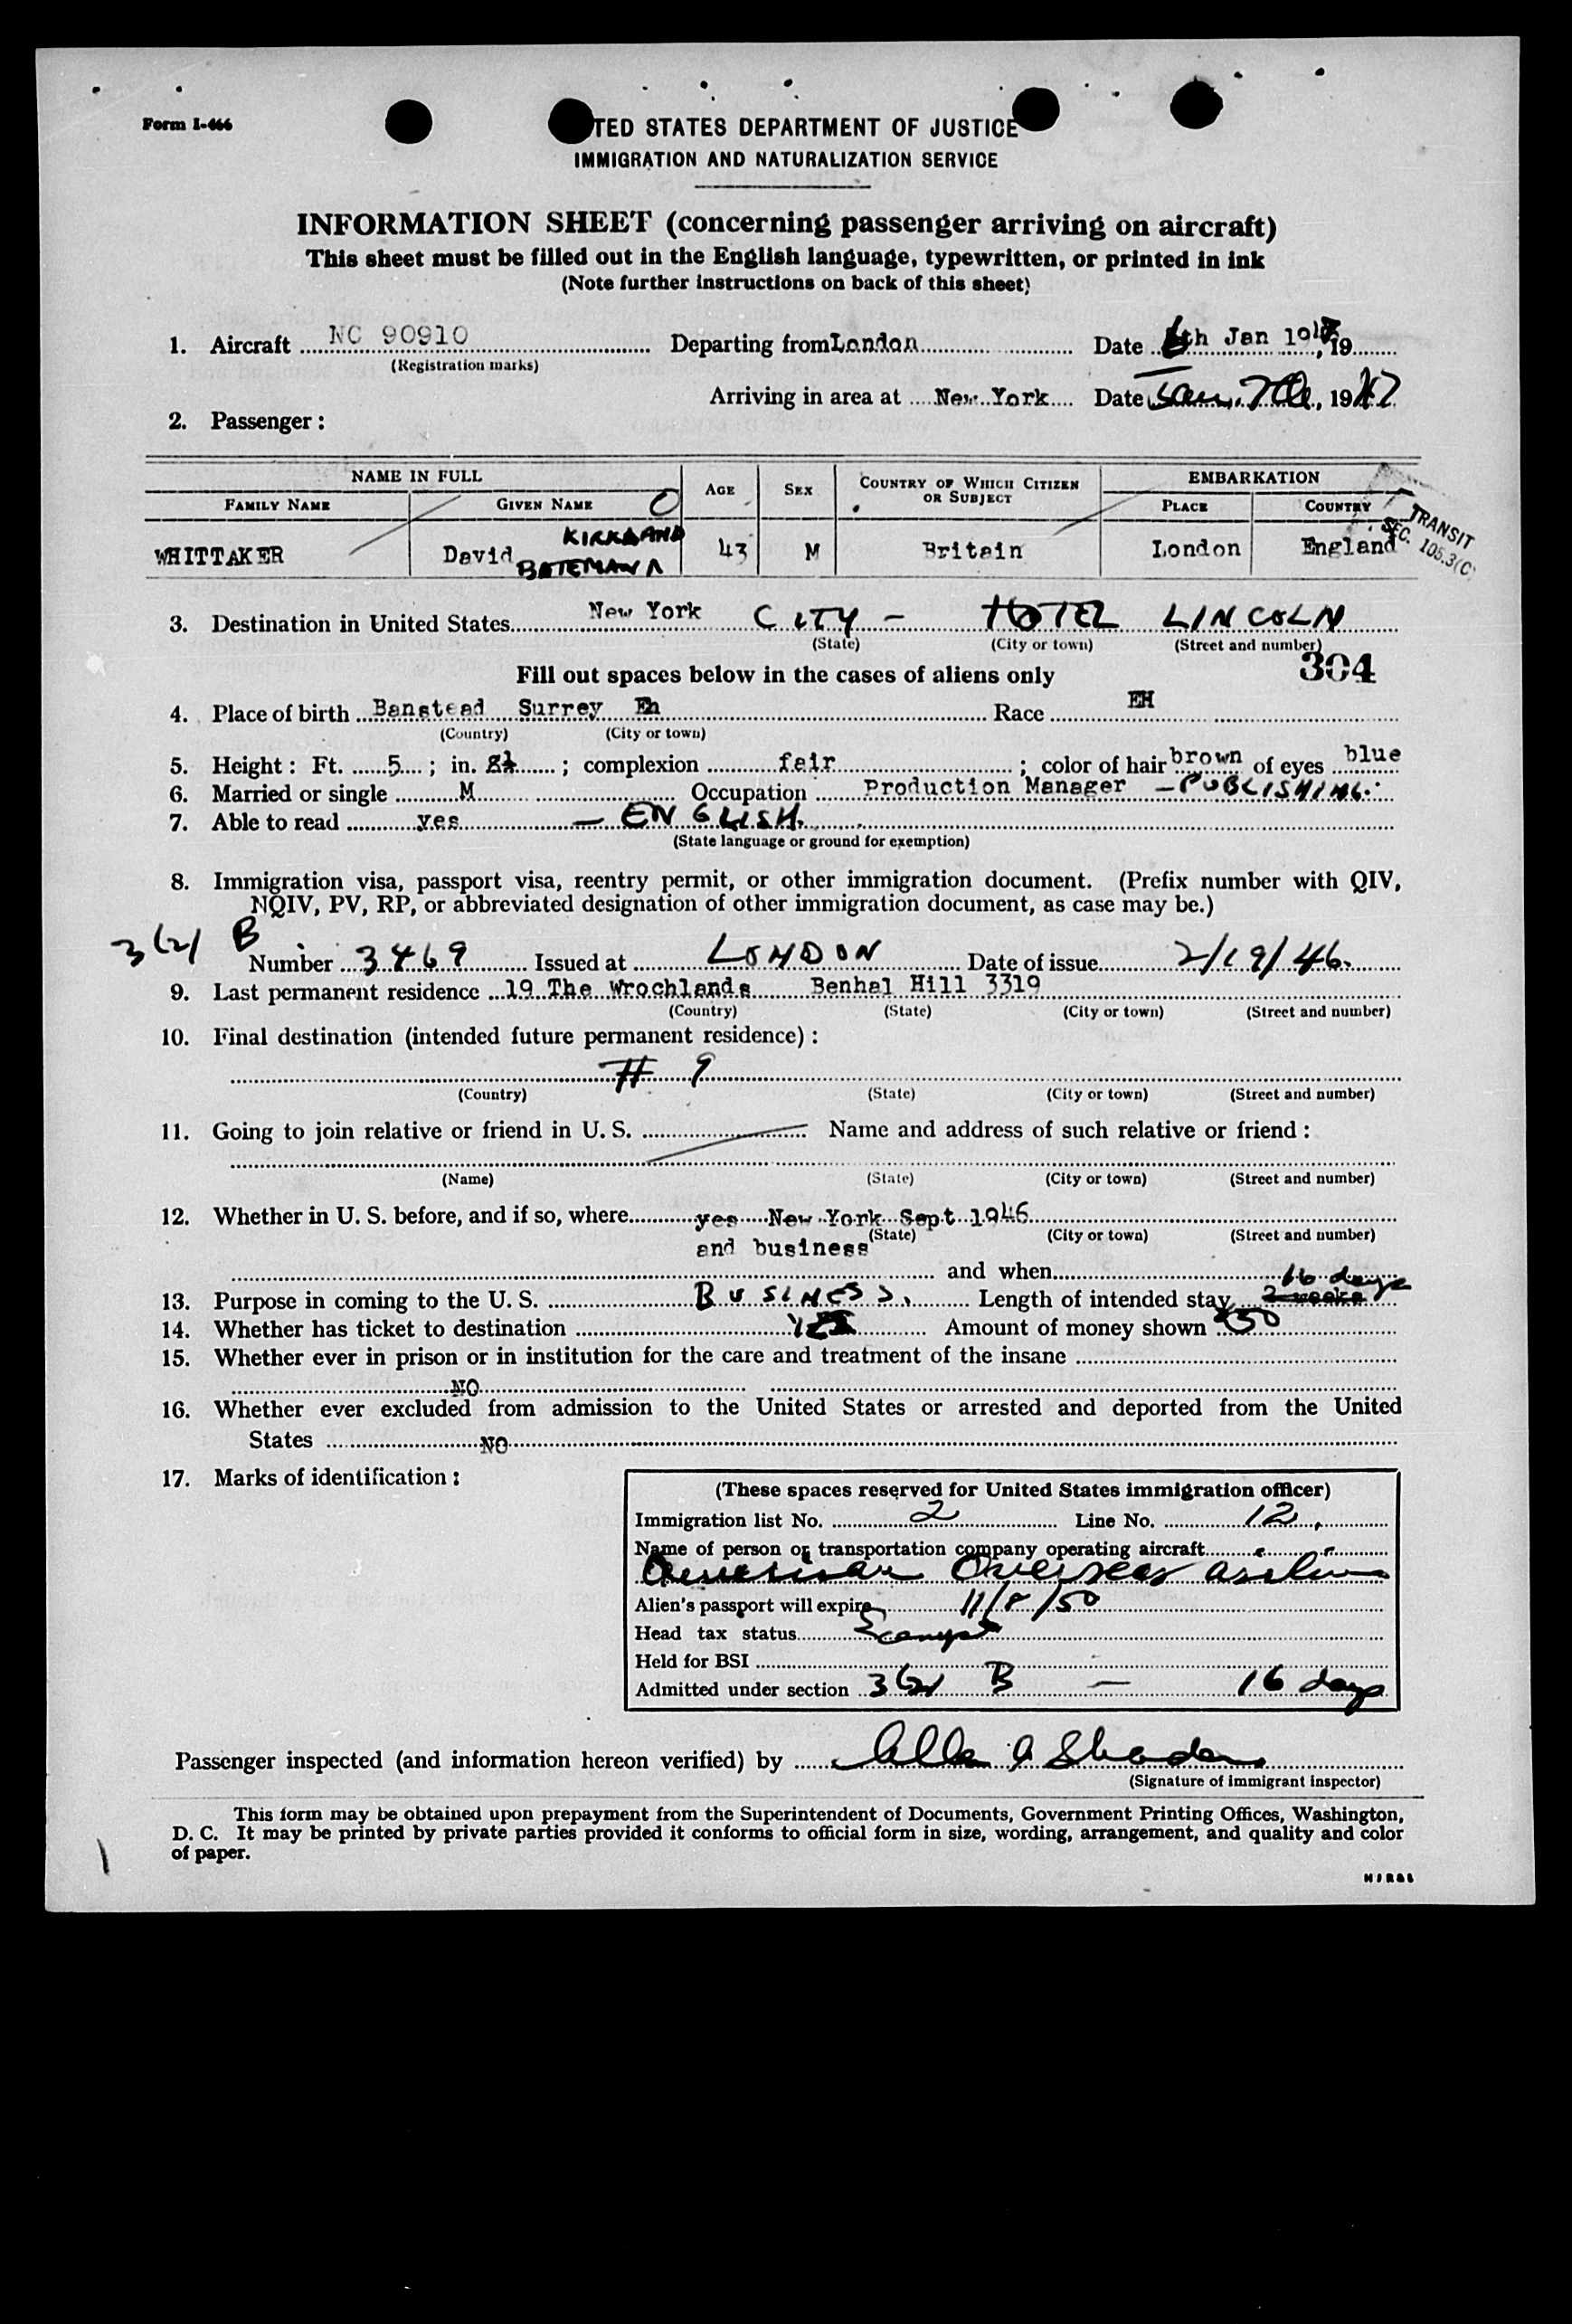 Form I-466
TED STATES DEPARTMENT OF JUSTICE
IMMIGRATION AND NATURALIZATION SERVICE
INFORMATION SHEET (concerning passenger arriving on aircraft)
This sheet must be filled out in the English language, typewritten, or printed in ink
(Note further instructions on back of this sheet)
1. Aircraft NC 90910 Departing from London Date 6th Jan 1947, 19
(Registration marks)
Arriving in area at New York Date Jan. 7th, 1947
2. Passenger:
NAME IN FULL AGE SEX COUNTRY OF WHICH CITIZEN OR SUBJECT EMBARKATION
FAMILY NAME GIVEN NAME PLACE COUNTRY
TRANSIT
SEC. 105.3(C)
KIRKLAND
WHITTAKER David 43 M Britain London England
BATEMAN
3. Destination in United States New York CITY - HOTEL LINCOLN
(State) (City or town) (Street and number)
Fill out spaces below in the cases of aliens only 304
4. Place of birth Banstead Surrey En Race EH
(Country) (City or town)
5. Height: Ft. 5; in. 8½; complexion fair; color of hair brown of eyes blue
6. Married or single M Occupation Production Manager - PUBLISHING.
7. Able to read yes - ENGLISH.
(State language or ground for exemption)
8. Immigration visa, passport visa, reentry permit, or other immigration document. (Prefix number with QIV,
NQIV, PV, RP, or abbreviated designation of other immigration document, as case may be.)
3(2) B
Number 3469 Issued at LONDON Date of issue 2/19/46.
9. Last permanent residence 19 The Wrochlands Benhal Hill 3319
(Country) (State) (City or town) (Street and number)
10. Final destination (intended future permanent residence):
# 9
(Country) (State) (City or town) (Street and number)
11. Going to join relative or friend in U. S. Name and address of such relative or friend:
(Name) (State) (City or town) (Street and number)
12. Whether in U. S. before, and if so, where yes New York Sept 1946
(State) (City or town) (Street and number)
and business
and when
13. Purpose in coming to the U. S. BUSINESS. Length of intended stay 2 weeks 16 days
14. Whether has ticket to destination YES Amount of money shown $50
15. Whether ever in prison or in institution for the care and treatment of the insane
NO
16. Whether ever excluded from admission to the United States or arrested and deported from the United
States NO
17. Marks of identification:
(These spaces reserved for United States immigration officer)
Immigration list No. 2 Line No. 12
Name of person or transportation company operating aircraft
American Overseas Airlines
Alien's passport will expire 11/8/50
Head tax status Exempt
Held for BSI
Admitted under section 3(2) B — 16 days
Passenger inspected (and information hereon verified) by
(Signature of immigrant inspector)
This form may be obtained upon prepayment from the Superintendent of Documents, Government Printing Offices, Washington,
D. C. It may be printed by private parties provided it conforms to official form in size, wording, arrangement, and quality and color
of paper.